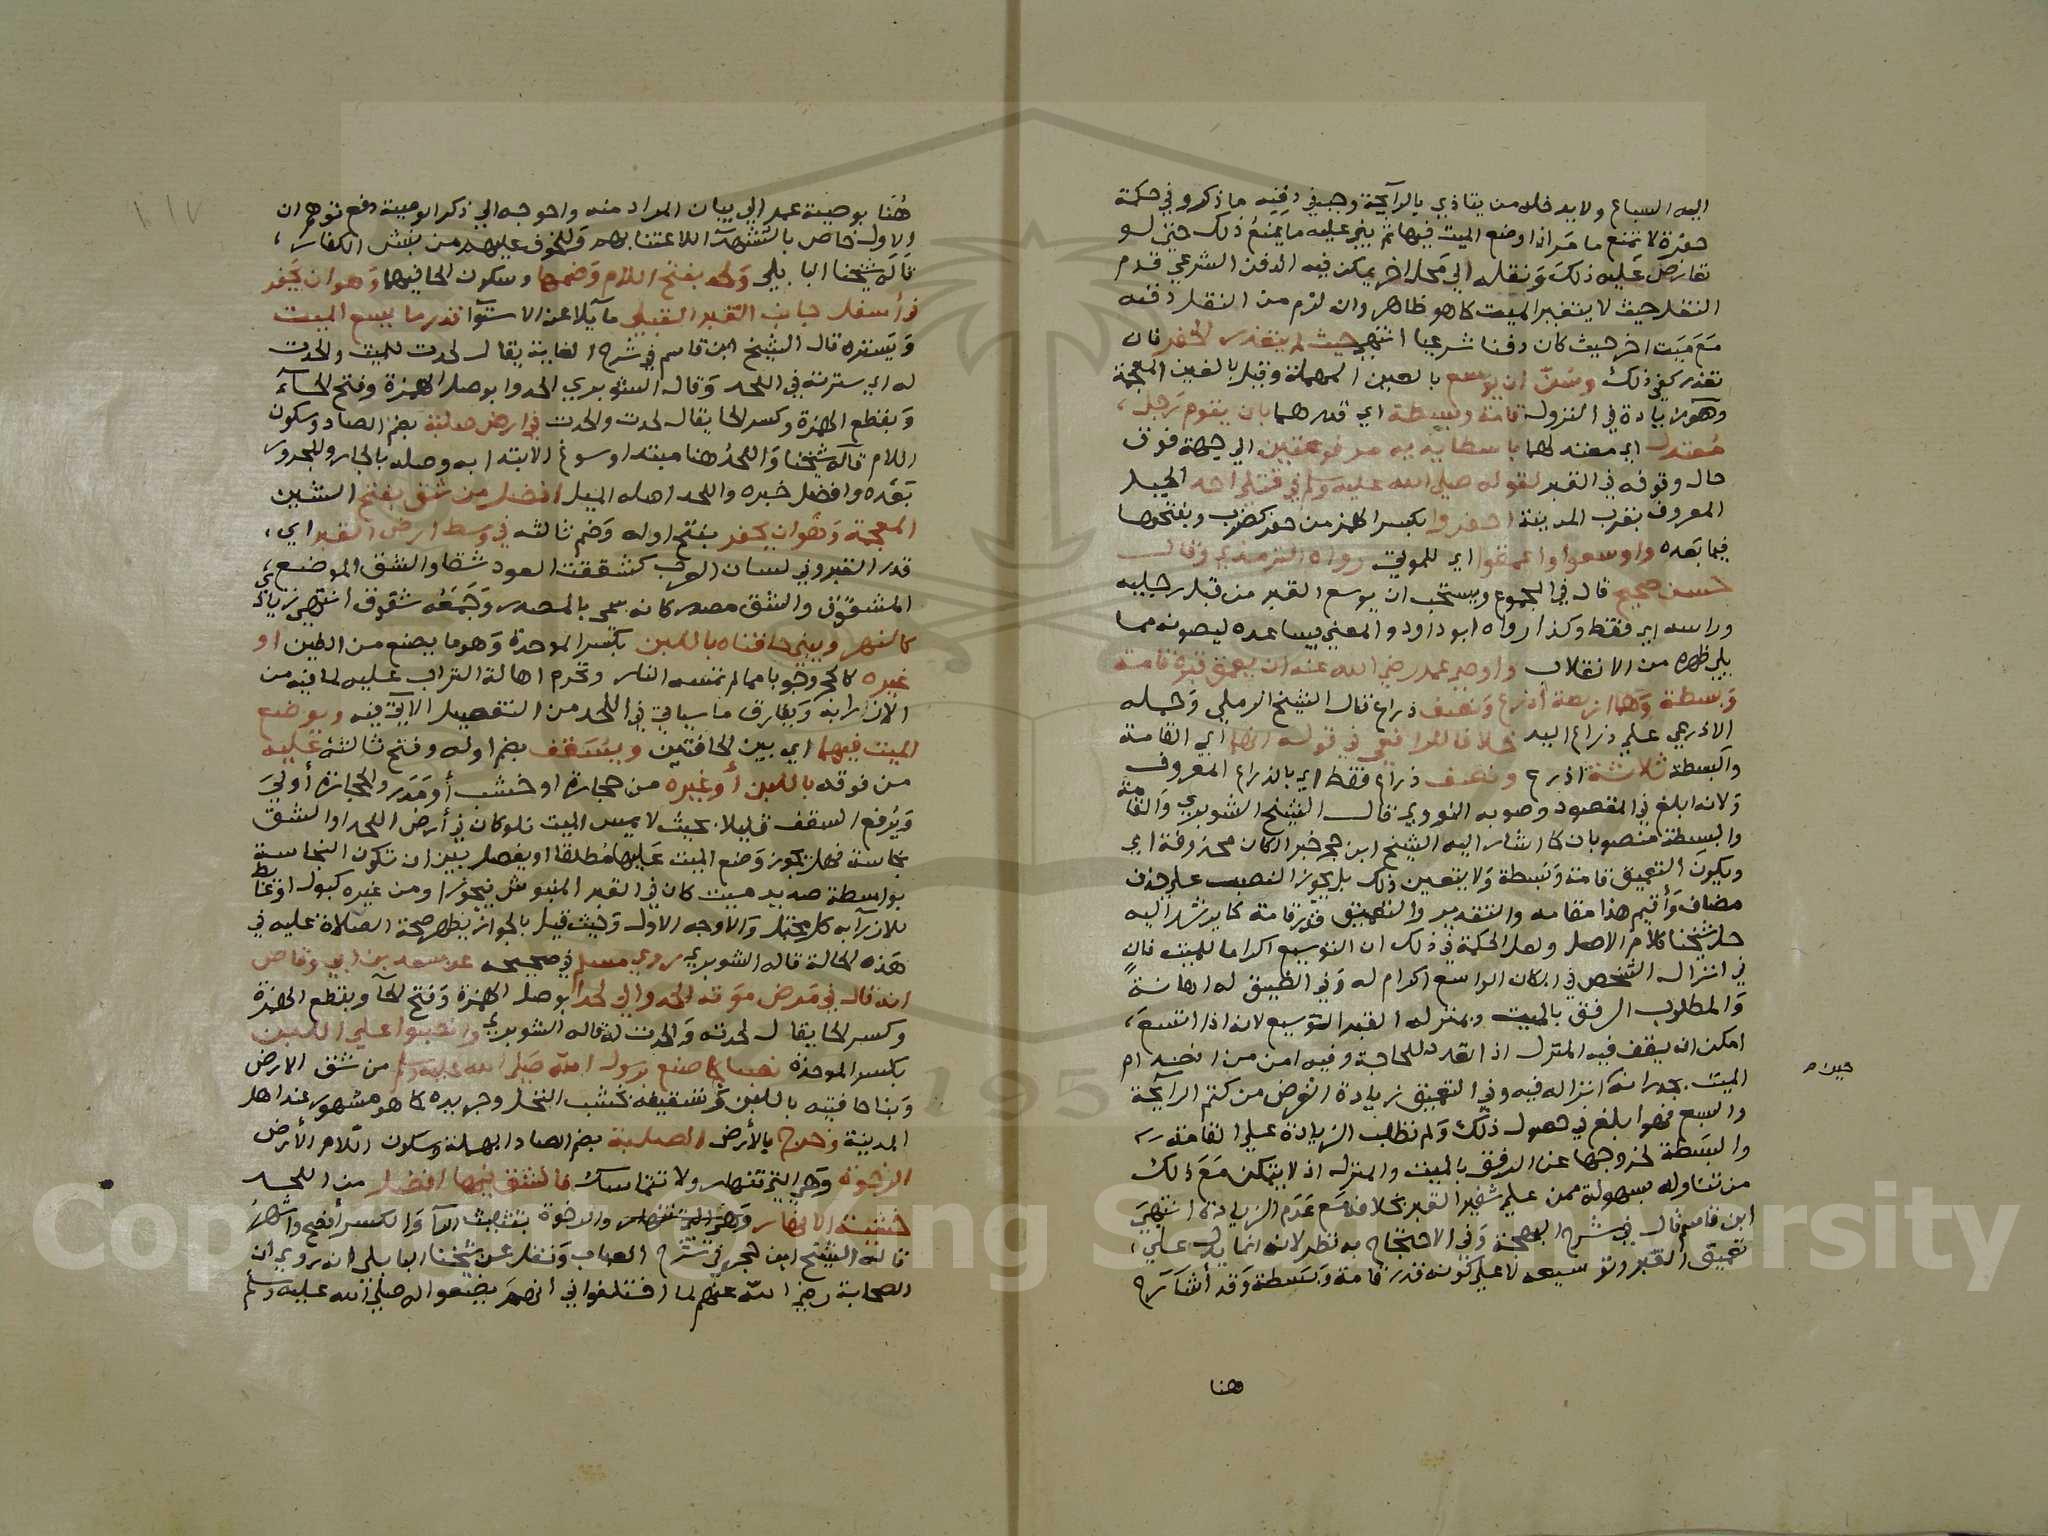 اليه السباع ولا يدخله من يتاذي بالرآيحة وجب في دفنه ما ذكر وفي حكمة
حفرة لا تمنع ما مر اذا وضع الميت فيها ثم بني عليه ما يمنع ذلك حتى لو
تعارض عليه ذلك ونقله الي محل اخر يمكن فيه الدفن الشرعي قدم
النقل حيث لا يتغير الميت كما هو ظاهر وان لزم من النقل دفنه
مع ميت اخر حيث كان دفنا شرعيا انتهي حيث لم يتعذر الحفر فان
تعذر كفي ذلك وسن ان يوسع بالعين المهملة وقيل بالغين المعجمة
وهو زيادة في النزول قامة وبسطة اي قدرهما بان يقوم رجل
معتدل اي معتدلهما باسطا يديه مرفوعتين الي جهة فوق
حال وقوفه في القبر لقوله صلي الله عليه وسلم في قتلي احد الجبل
المعروف بقرب المدينة احفروا بكسر الهمز من حفر كضرب وبفتحها
فيما بعده واوسعوا واعمقوا اي للموتي رواه الترمذي وقال
حسن صحيح قال في المجموع ويستحب ان يوسع القبر من قبل رجليه
وراسه اي فقط وكذا رواه ابو داود والمعني يساعده ليصونه مما
يلي ظهره من الانقلاب واوصي عمر رضي الله عنه ان يعمق قبره قامة
وبسطة وهما اربعة أذرع ونصف ذراع قال الشيخ الرملي وحمله
الاذرعي علي ذراع اليد خلافا للرافعي في قوله انهما اي القامة
والبسطة ثلاثة اذرع ونصف ذراع فقط اي بالذراع المعروف
ولانه ابلغ في المقصود وصوبه النووي قال الشيخ الشوبري والقامة
والبسطة منصوبان كما اشار اليه الشيخ ابن حجر خبر الكان محذوفة اي
ويكون التعميق قامة وبسطة ولا يتعين ذلك بل يجوز النصب علي حذف
مضاف وأقيم هذا مقامه والتقدير والتعميق قدر قامة كما يرشد اليه
حل شيخنا كلام الاصل ولعل الحكمة في ذلك ان التوسيع اكراما للميت فان
في انزال الشخص في المكان الواسع اكرام له وفي الضيق له اهانة
والمطلوب الرفق بالميت وبمنزله القبر التوسيع لانه اذا اتسع
امكن ان يقف فيه المنزل اذا تعدد للحاجة وفيه امن من انخدام
حين م
الميت بجدرانه انزاله فيه وفي التعميق زيادة الغرض من كتم الرآيحة
والسبع فهو ابلغ في حصول ذلك ولم تطلب الزيادة علي القامة
والبسطة لخروجها عن الرفق بالميت والمنزل اذ لا يتمكن مع ذلك
من تناوله بسهولة ممن علي شفير القبر بخلافه مع عدم الزيادة انتهي
ابن قاسم قال في شرح البهجة وفي الاحتجاج به نظر لانه انما يدل علي
تعميق القبر وتوسيعه لا علي كونه قدر قامة وبسطة وقد أشارح
هنا
١١٧
هنا بوصية عمر الي بيان المراد منه واحوجه الي ذكر الوصية دفع توهم ان
الاول خاص بالشهدآ للاعتنا بهم وللخوف عليهم من نبش الكفار
قاله شيخنا البابلي ولحد بفتح اللام وضمها وسكون الحا فيهما وهو ان يحفر
في أسفل جانب القبر القبلي مآيلا عن الاستوآ قدر ما يسع الميت
ويستره قال الشيخ ابن قاسم في شرح الغاية يقال لحدت للميت والحدت
له اي سترته في اللحد وقال الشوبري الحدوا بوصل الهمزة وفتح الحآء
وبقطع الهمزة وكسر الحا يقال لحدت والحدت في ارض صلبة بضم الصاد وسكون
اللام قاله شيخنا واللحد هنا مبتدا وسوغ الابتدا به وصله بالجار والمجرور
بعده وافضل خبره واللحد اصله الميل افضل من شق بفتح الشين
المعجمة وهو ان يحفر بفتح اوله وضم ثالثه في وسط ارض القبر اي
قدر القبر وفي لسان العرب كشققت العود شقا والشق الموضع
المشقوق والشق مصدر كانه سمي بالمصدر وجمعه شقوق انتهي زيادي
كالنهر ويبني حافتاه باللبن بكسر الموحدة وهو ما يصنع من الطين او
غيره كالحجر وجوبا مما لم تمسه النار وتحرم اهالة التراب عليه لما فيه من
الازرا به ويفارق ما سياتي في اللحد من التفصيل الاتي فيه ويوضع
الميت فيهما اي بين الحافتين ويسقف بضم اوله وفتح ثالثه عليه
من فوقه باللبن أو غيره من حجارة او خشب أو مدر والحجارة أولي
ويرفع السقف قليلا بحيث لا يمس الميت فلو كان في أرض اللحد او الشق
نجاسة فهل يجوز وضع الميت عليها مطلقا او يفصل بين ان تكون النجاسة
بواسطة صديد ميت كان في القبر المنبوش فيجوز او من غيره كبول او غايط
للازرآ به كل محتمل والاوجه الاول وحيث قيل بالجواز يظهر صحة الصلاة عليه في
هذه الحالة قاله الشوبري روي مسلم في صحيحه عن سعد بن ابي وقاص
انه قال في مرض موته الحدوا لي لحدا بوصل الهمزة وفتح الحآ وبقطع الهمزة
وكسر الحا يقال لحدته والحدت له قاله الشوبري وانصبوا علي اللبن
بكسر الموحدة نصبا كما صنع برسول الله صلي الله عليه وسلم من شق الارض
وبنا حافتيه باللبن وتسقيفه بخشب النخل وجريده كما هو مشهور عند اهل
المدينة وخرج بالأرض الصلبة بضم الصاد المهملة وسكون اللام الأرض
الرخوة وهي التي تنهار ولا تتماسك فالشق فيها افضل من اللحد
خشية الانهيار والرخوة بتثليث الرآ والكسر أفصح واشهر
قاله الشيخ ابن حجر في شرح العباب ونقل عن شيخنا البابلي انه روي ان
الصحابة رضي الله عنهم لما اختلفوا في انهم يضعوا له صلي الله عليه وسلم